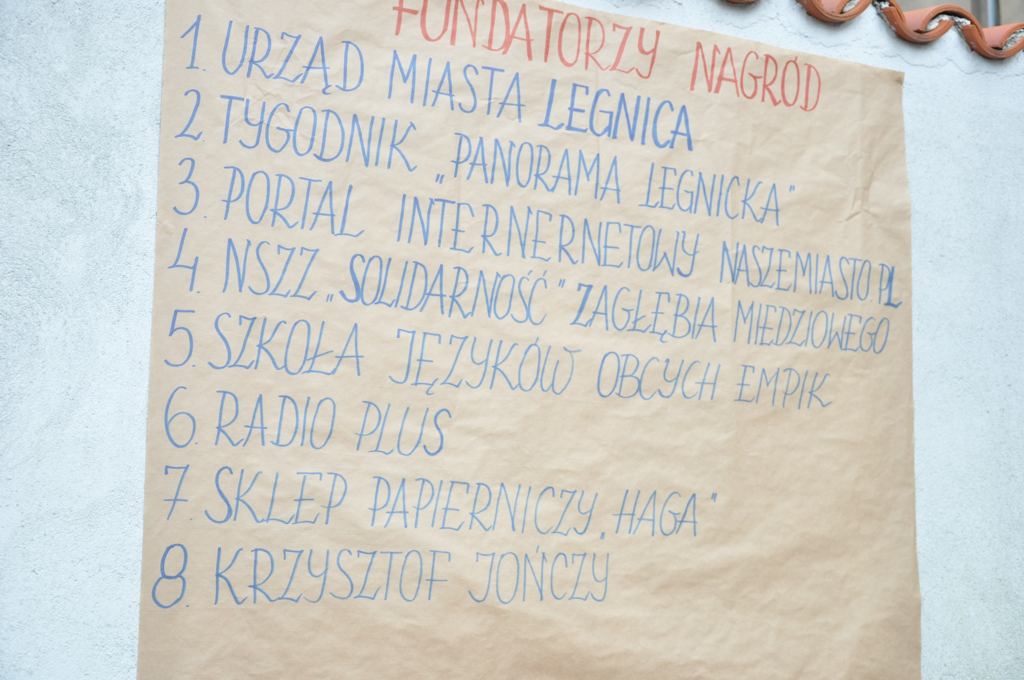 FUNDATORZY NAGRÓD
1. URZĄD MIASTA LEGNICA
2 TYGODNIK „PANORAMA LEGNICKA"
3. PORTAL INTERNERNETOWY NASZEMIASTO.PL
4. NSZZ „SOLIDARNOŚĆ" ZAGŁĘBIA MIEDZIOWEGO
5. SZKOŁA JĘZYKÓW OBCYCH EMPIK
6. RADIO PLUS
7. SKLEP PAPIERNICZY „HAGA"
8. KRZYSZTOF JOŃCZY